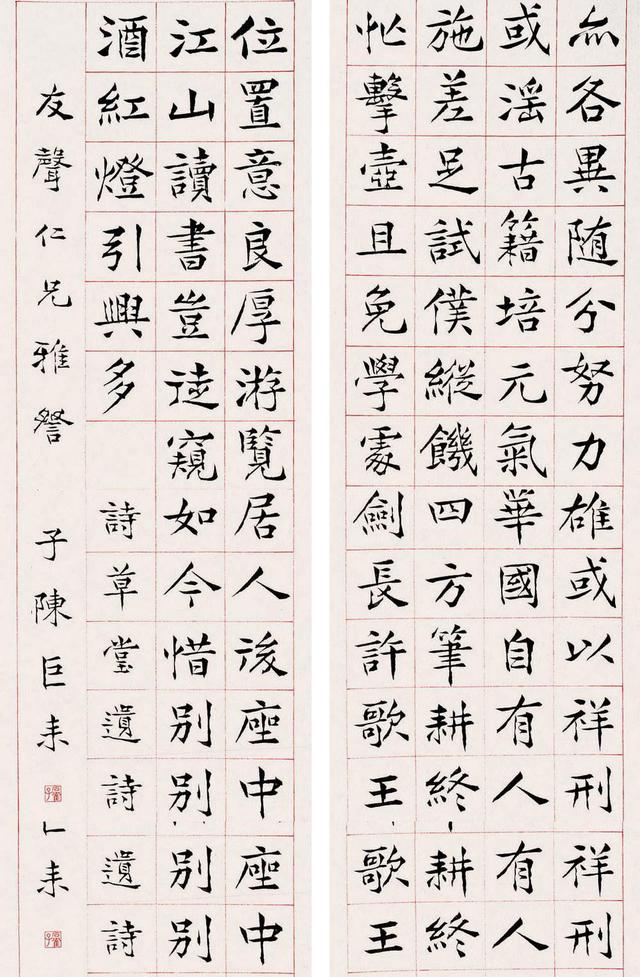 亦各異随分努力雄或以祥刑祥刑
或滛古籍培元氣華國自有人有人
施差足試僕縱饑四方筆耕終耕終
擊壺且免學處劍長許歌王歌王
位置意良厚游覽居人後座中座中
江山讀書豈遠窺如今惜别别别别
酒紅燈引興多
詩草堂遺詩遺詩
友聲仁兄雅詧
子陳巨耒
耒